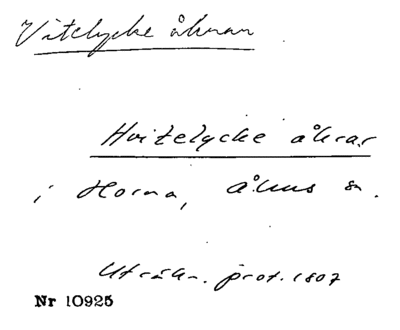 Vitelycke åkrar
Hvitelycke åkrar
i Horna, Åhus sn.
Uträkn. prot. 1807
Nr 10925